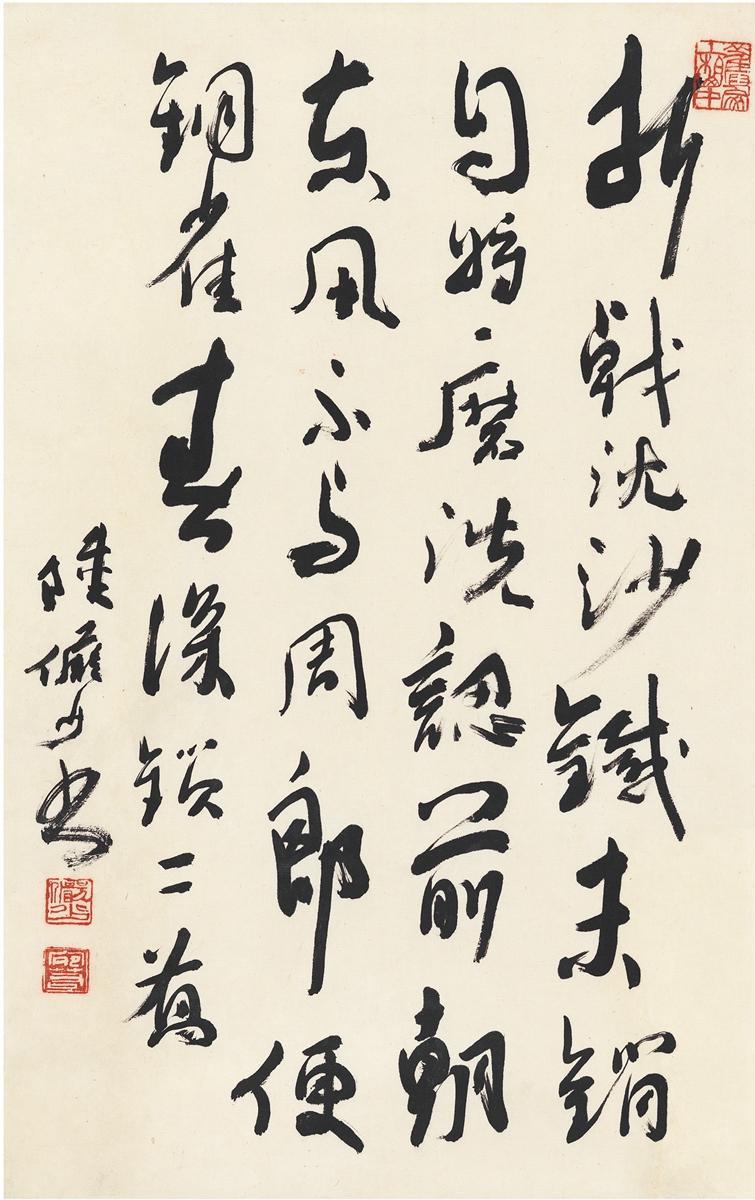 折戟沈沙鐵未銷
自將磨洗認前朝
東風不与周郎便
銅雀春深鎖二喬
陸儼少書